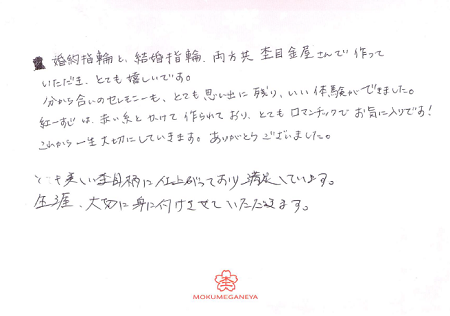 婚約指輪と、結婚指輪、両方共 杢目金屋さんで作って
いただき、とても嬉しいです。
分かち合いのセレモニーも、とても思い出に残り、いい体験ができました。
紅一すじは、赤い糸とかけて作られており、とてもロマンチックでお気に入りです！
これから一生大切にしていきます。ありがとうございました。
とても美しい杢目柄に仕上がっており満足しています。
生涯、大切に身に付けさせていただきます。
MOKUMEGANEYA